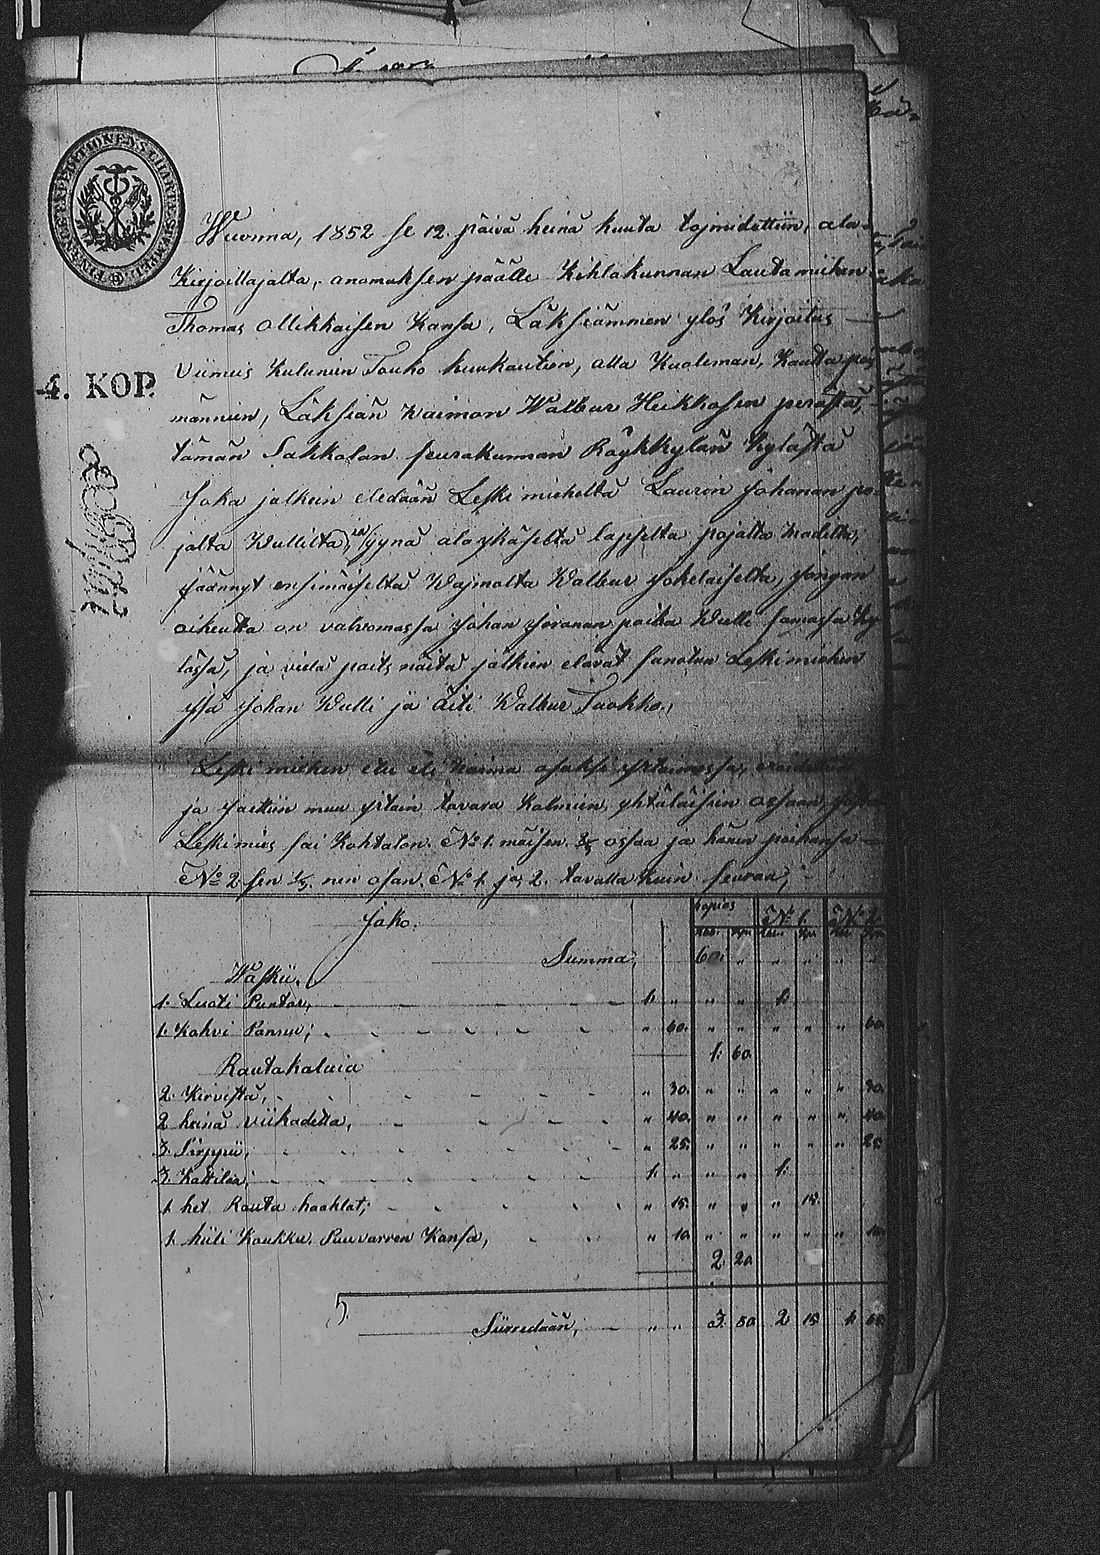 FINANCE EXPEDITIONENS CHARTÆ SIGILLATÆ
4. KOP.
Wuonna, 1852 se 12. päivä heinä kuuta tojmidettiin, ala
Kirjoittajalta, anomuksen päälle Kihlakunnan Lautamiehen
Thomas Mikkaisen Kansa, Läksiämmen ylös Kirjoitus
Viimeis Kulunien Touko kuukautien, alla Kuoleman, Kautta pos
männien, Läksiän Waimon Walbur Heikkosen perästä,
tämän Sakkolan seurakunnan Röykkylän Kylästä
Joka jälkein eledään Leskimiehelta Laurin Johanan po
jalta Wullilta, syynä alaykäselta lapselta pojalta
jäännyt ensimäiseltä Wajmolta Walbur Jokelaiselta, jongan
oikeutta on valvomassa Johan Joranan poika Wulli samassa Ky
lässä, ja vielä paits näitä jälkien elävät sanotun Leskimiehen
Isä Johan Wulli ja Äiti Walbur Tuokko,
Leskimiehen etu eli Kaima osaksi
ja jaettiin muu Irtain tavara Kolmeen yhtäläiseen ossaan,
Leskimies sai Kohtalon. No 1. mäisen. 2/3 ossaa ja hänen poikansa
No 2. sen 1/3. nen osan. No 1. ja 2. tavalla kuin seuraa;
Jako. No 1. No 2.
Summa, 60. " " " " "
Waskii,
1. Luoti Puntar, 1. " " " 1.
1. Kahvi Pannu; " 60. " " " " " 60.
1. 60.
Rautakaluia
2. Kirvistä, " 30. " " " " " 30.
2. heinä viikadetta, " 40. " " " " " 40.
3. Sirppii, " 25. " " " " " 25.
3. Kattilaa; 1. " " " 1.
1. het. Rauta haahlat; " 15. " " " 15.
1. hiili Koukku. Puuvarren Kansa, " 10. " " " " " 10.
2. 20.
Siirredään, " " 3. 80. 2 15 1.